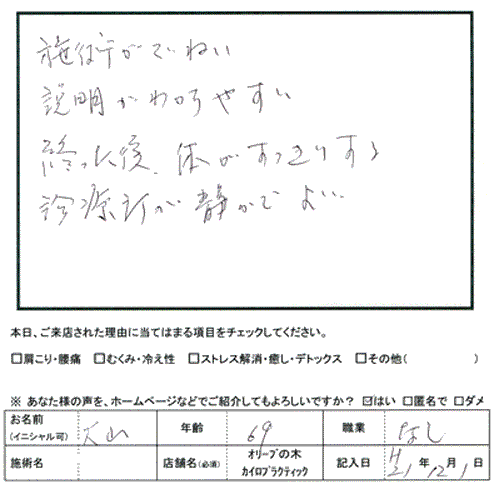 施術がていねい
説明がわかりやすい
終った後、体がすっきりする
診療所が静かでよい.
本日、ご来店された理由に当てはまる項目をチェックしてください。
□肩こり・腰痛 □むくみ・冷え性 □ストレス解消・癒し・デトックス □その他( )
※ あなた様の声を、ホームページなどでご紹介してもよろしいですか? ☑はい □匿名で □ダメ
お名前 (イニシャル可) 大山 年齢 69 職業 なし
施術名 店舗名(必須) オリーブの木 カイロプラクティック 記入日 H21年12月1日